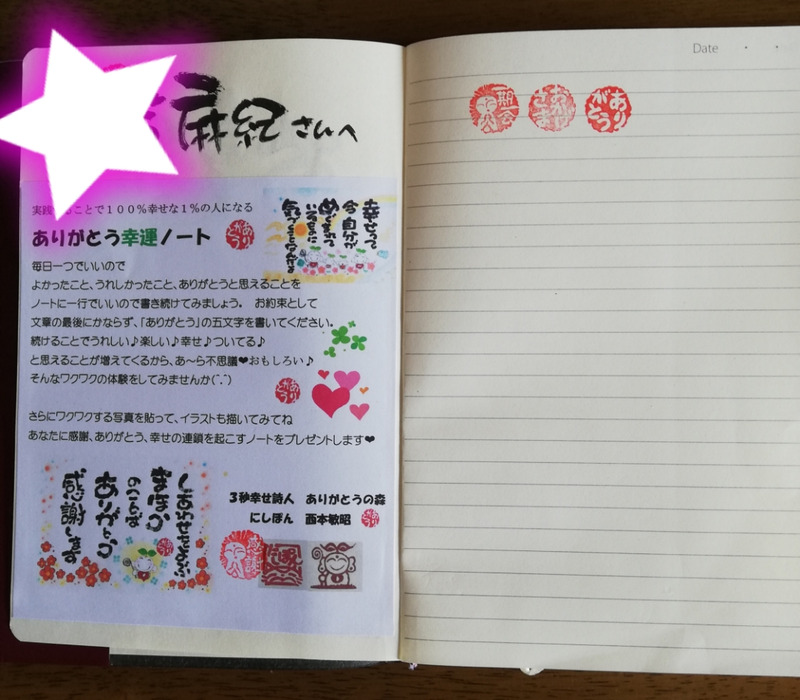 麻紀さんへ
実践することで１００％幸せな１％の人になる
ありがとう幸運ノート
ありがとう
幸せって
今自分が
めぐまれて
いるものに
気づくことなんだよ
毎日一つでいいので
よかったこと、うれしかったこと、ありがとうと思えることを
ノートに一行でいいので書き続けてみましょう。　お約束として
文章の最後にかならず、「ありがとう」の五文字を書いてください。
続けることでうれしい♪楽しい♪幸せ♪ついてる♪
と思えることが増えてくるから、あ～ら不思議❤おもしろい♪
そんなワクワクの体験をしてみませんか(^.^)
ありがとう
さらにワクワクする写真を貼って、イラストも描いてみてね
あなたに感謝、ありがとう、幸せの連鎖を起こすノートをプレゼントします❤
しあわせをよぶ
まほう
のことば
ありがとう
感謝します
３秒幸せ詩人　ありがとうの森
にしぽん　西本敏昭
感謝
Date
一期一会
おかげさま
ありがとう